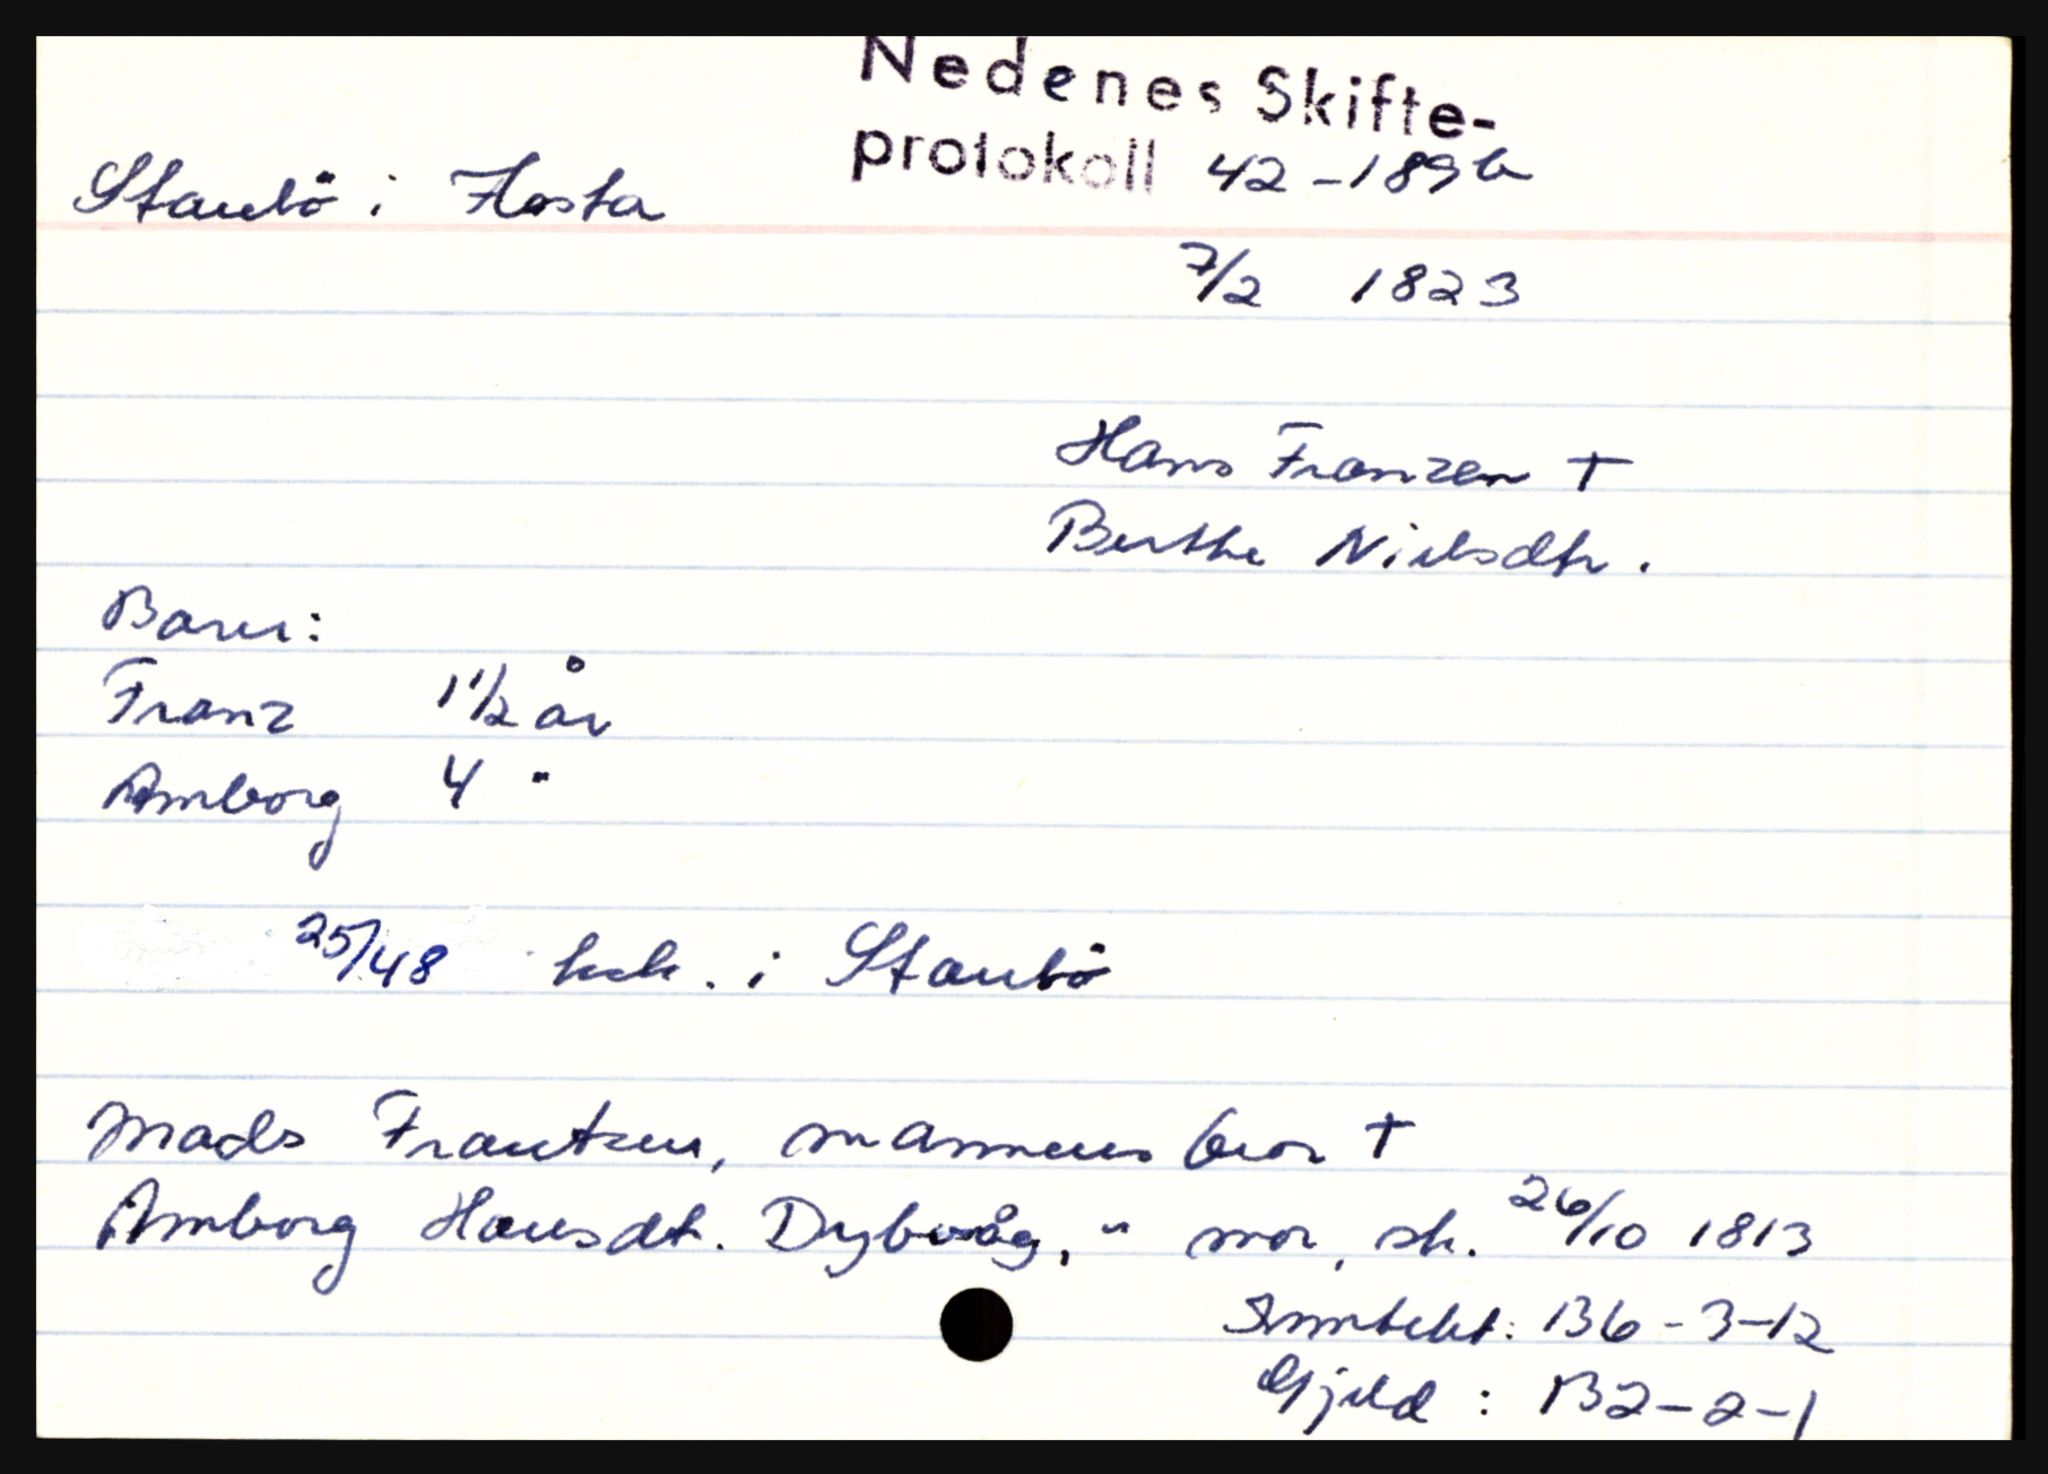 Nedenes Skifte-
protokoll 42-189b
Staubö i Hosta
7/2 1823
Hans Franzen †
Berthe Nielsdtr.
Barn:
Franz 1 1/2 år
Amborg 4 "
25/48 hsk. i Staubö
Mads Frantzen, mannens bror †
Amborg Hansdt. Dybvåg, " mor, sk. 26/10 1813
Inntekt: 136-3-12
Gjeld: 132-2-1